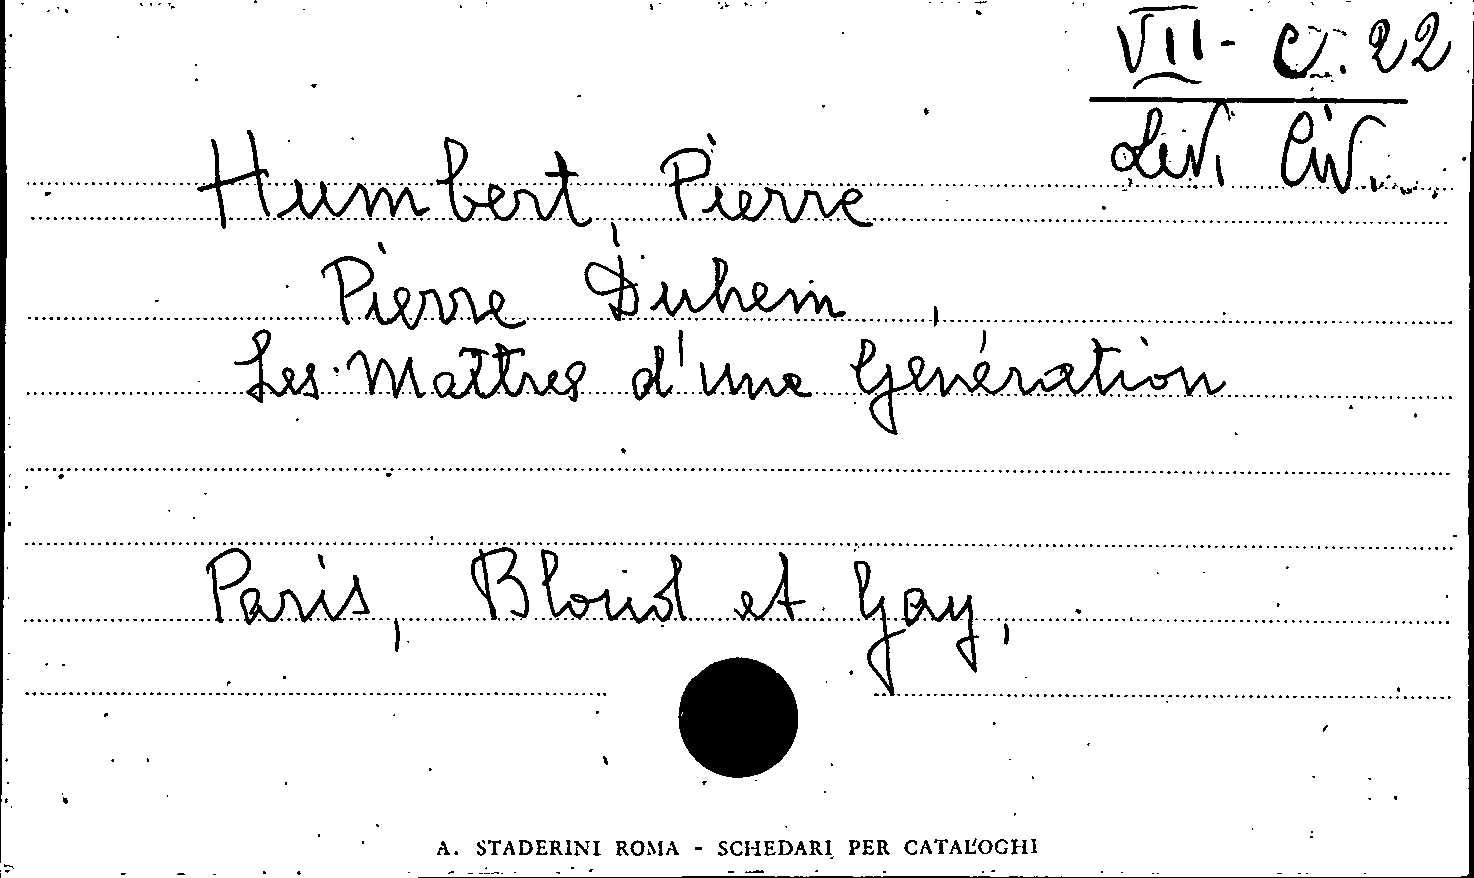 VII - C. 22
Liv. Civ.
Humbert, Pierre
Pierre Duhem,
Les Maîtres d'une Génération
Paris, Bloud et Gay,
A. STADERINI ROMA - SCHEDARI PER CATALOGHI